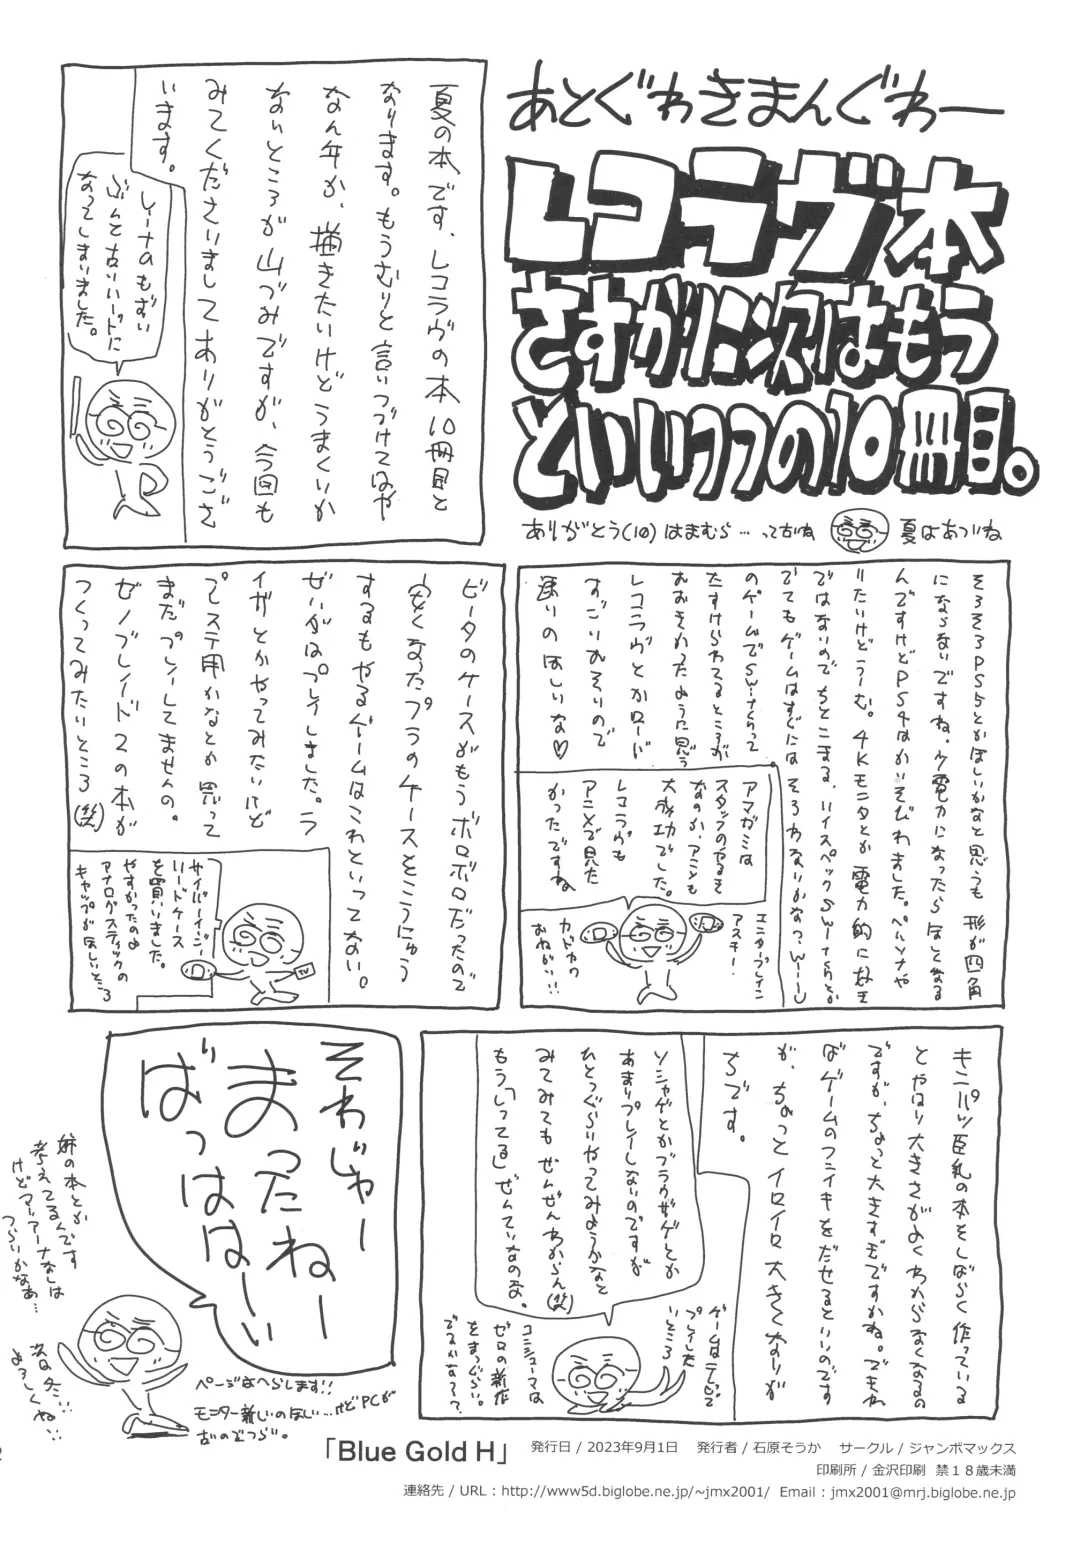 あとぐわきまんぐわー
レコラヴ本
さすがに次はもう
といいつつの10冊目。
ありがとう(10) はまむら…って古いね
夏はあついね
夏の本です、レコラヴの本10冊目と
なります。もうむりと言いつづけてはや
なん年か、描きたいけどうまくいか
ないところが山づみですが、今回も
みてくださいましてありがとうござ
います。
レイーナのもずい
ぶんと古いハードに
なってしまいました。
そろそろPS5とかほしいかなと思うも 形が四角
にならないですね。ケ電力になったらほしくなる
んですけどPS4はかいそびれました。ペルソナや
りたいけどうーむ。4Kモニタとか電力的に好き
ではないのでちとこまる、ハイスペックSwitchとか
でてもゲームはすぐには そろわないかなっ、Wii U
のゲームでSwitchって
たすけられてるところが
おおきかったように思う
レコラヴとかロード
すごいおそいので
速いのほしいな♡
アマガミは
スタッフのやるき
なのか、アニメも
大成功でした。
レコラヴも
アニメで見た
かったですね
エンタブレイン
アスキー、
カドカワ
おねがい!!
ビータのケースがもうボロボロだったので
安くなったプラのケースをこうにゅう
するもやるゲームはこれといってない。
ぜいがはプレイしました。ラ
イザとかやってみたいけど
プレステ用かなとか思って
まだプレイしてませんの。
ゼノブレイド2の本が
つくってみたいところ(笑)
サイバーィシン
ハードケース
を買いました。
やすかったのよ
アナログスティックの
キャップがほしいところ
TV
キンパツ巨乳の本をしばらく作っている
とやはり大きさがよくわからなくなるの
ですが、ちょっと大きすぎですかね。できれ
ばゲームのフンイキをだせるといいのです
が、ちょっとイロイロ大きくなりが
ちです。
ソシャゲとかブラウザゲとか
あまりプレイしないのですが
ひとつぐらいやってみようかなと
みてみてもぜんぜんわからん(笑)
もう「いってる」ぜんていなのな。
ゲームはテレビで
プレイした
いところ
コンシューマは
ゼロの新作
をまつぐらい。
でるかな???
それじゃー
まったねー
ばっははーい
妹の本とか
考えてるんです
けどマリアーナなしは
つらいかなあ…
次は冬!!
よろしくね!!
ページはへらします!!
モニター新しいのほしい…けどPCが
古いのでつらい。
「Blue Gold H」
発行日 / 2023年9月1日 発行者 / 石原そうか サークル / ジャンボマックス
印刷所 / 金沢印刷 禁18歳未満
連絡先 / URL : http://www5d.biglobe.ne.jp/~jmx2001/ Email : jmx2001@mrj.biglobe.ne.jp